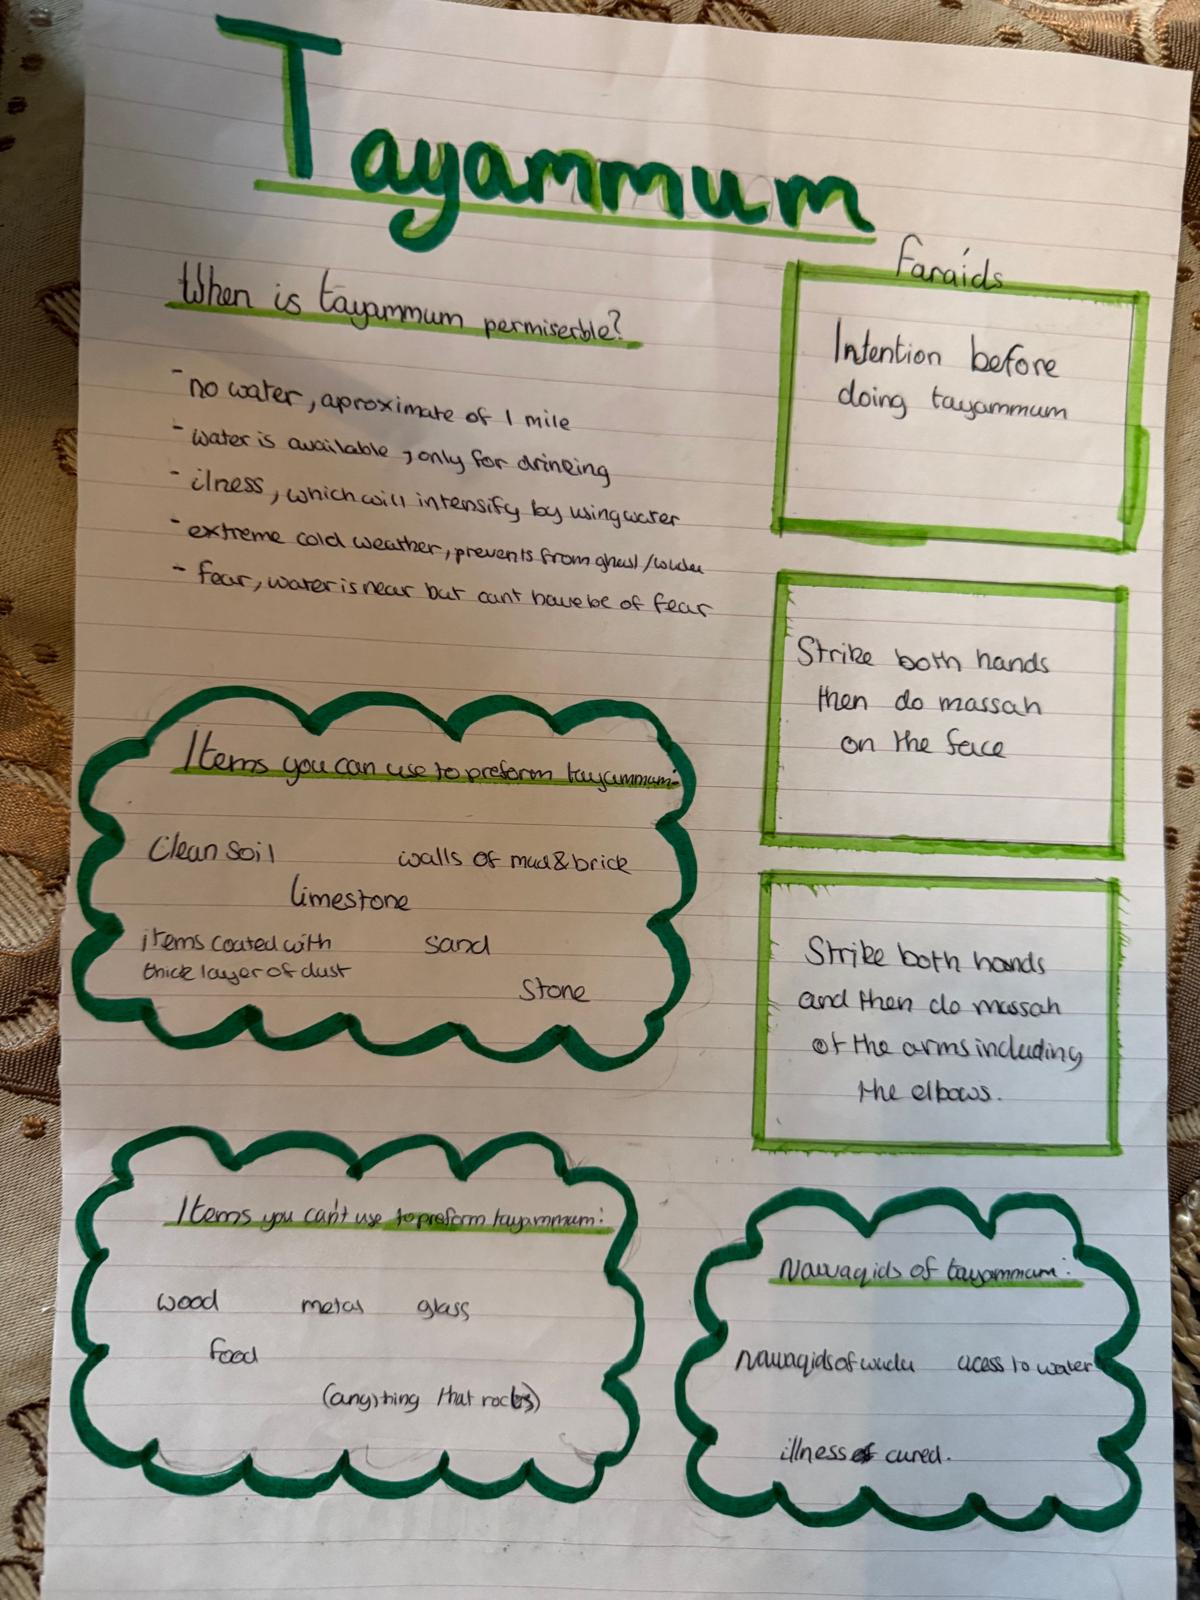 Tayammum
When is tayammum permiserble?
- no water, aproximate of 1 mile
- water is available, only for drinking
- ilness, which will intensify by using water
- extreme cold weather, prevents from ghusl/wudu
- fear, water is near but cant have bc of fear
Faraids
Intention before
doing tayammum
Strike both hands
then do massah
on the face
Strike both hands
and then do massah
of the arms including
the elbows.
Items you can use to preform tayammum:
Clean soil walls of mud & brick
limestone
items coated with sand
thick layer of dust
Stone
Items you can't use to preform tayammum:
wood metal glass
food
(anything that
Nawaqids of tayammum:
Nawaqids of wudu acess to water
illness cured.